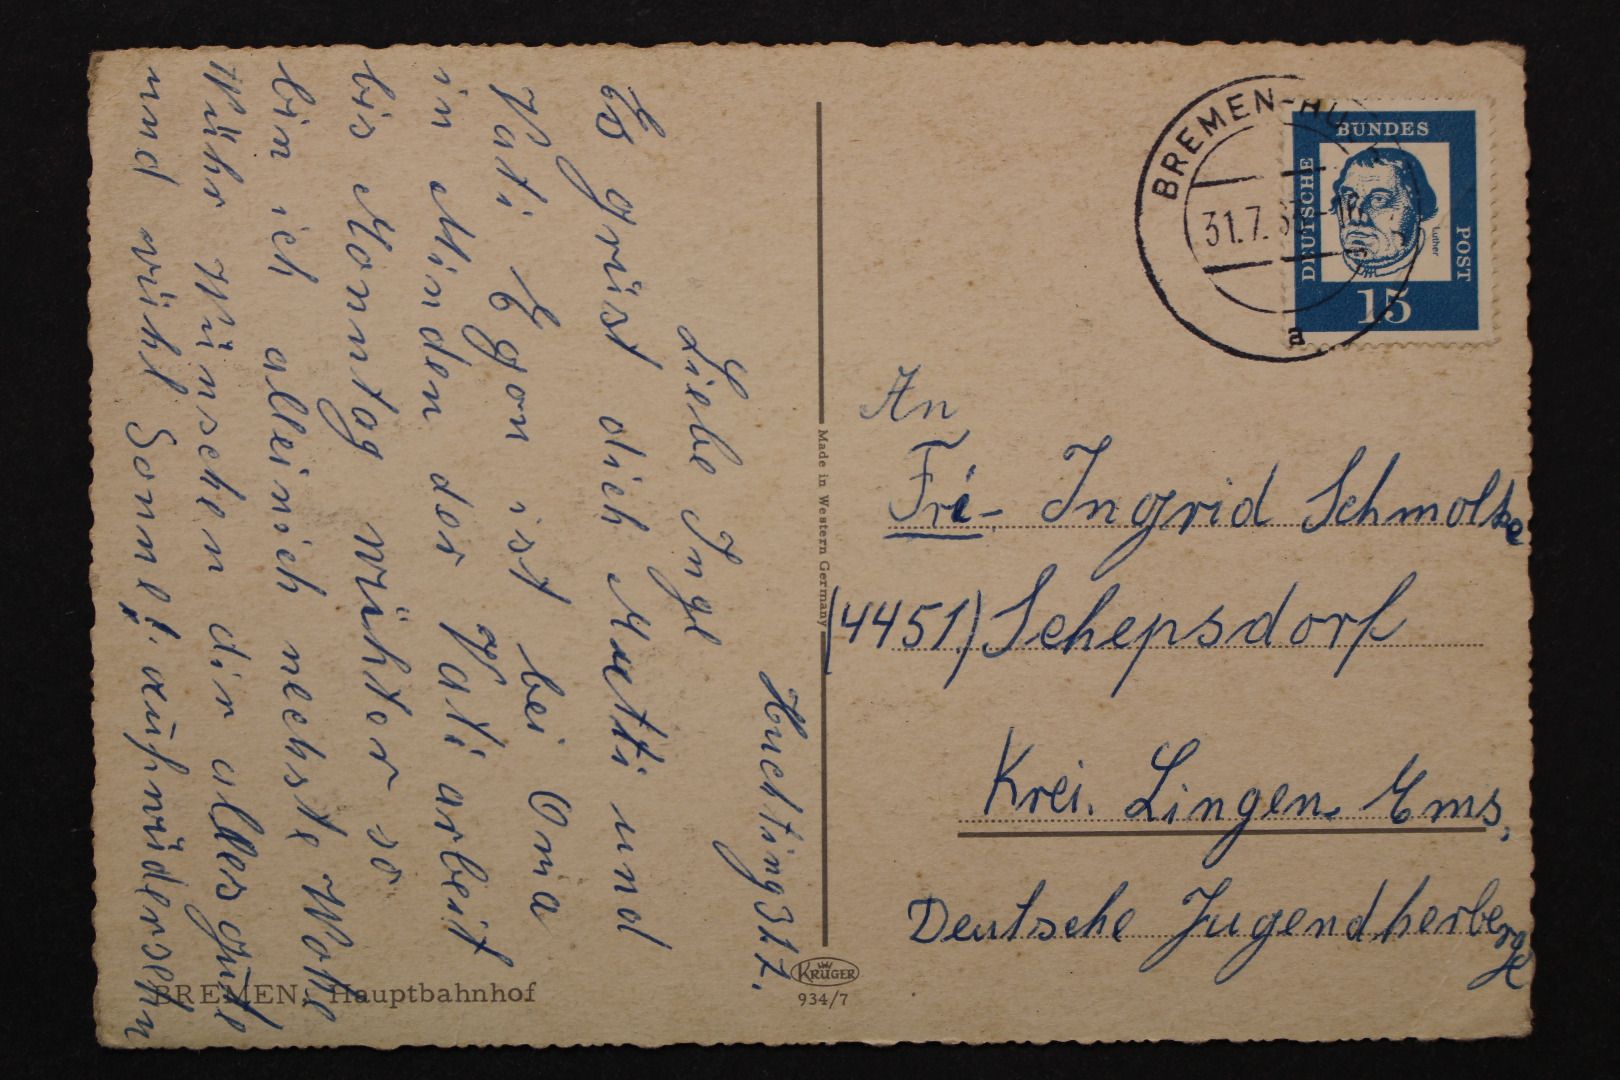 Huchting 31.7.
Liebe Inge
Es grüst dich Mutti und
Vati Egon ist bei Oma
in Minden dor Vati arbeit
bis Monntag wühter so
bin ich alleinich nechste Woke
Wühr Wünschen dir alles gute
und vühl Sonne! aufwüdersehn
BREMEN, Hauptbahnhof
Made in Western Germany
KRÜGER
934/7
BREMEN-HU
31.7.
a
DEUTSCHE BUNDES POST
Luther
15
An
Frl. Ingrid Schmolke
(4451) Schepsdorf
Krei. Lingen. Ems,
Deutsche Jugendherberge